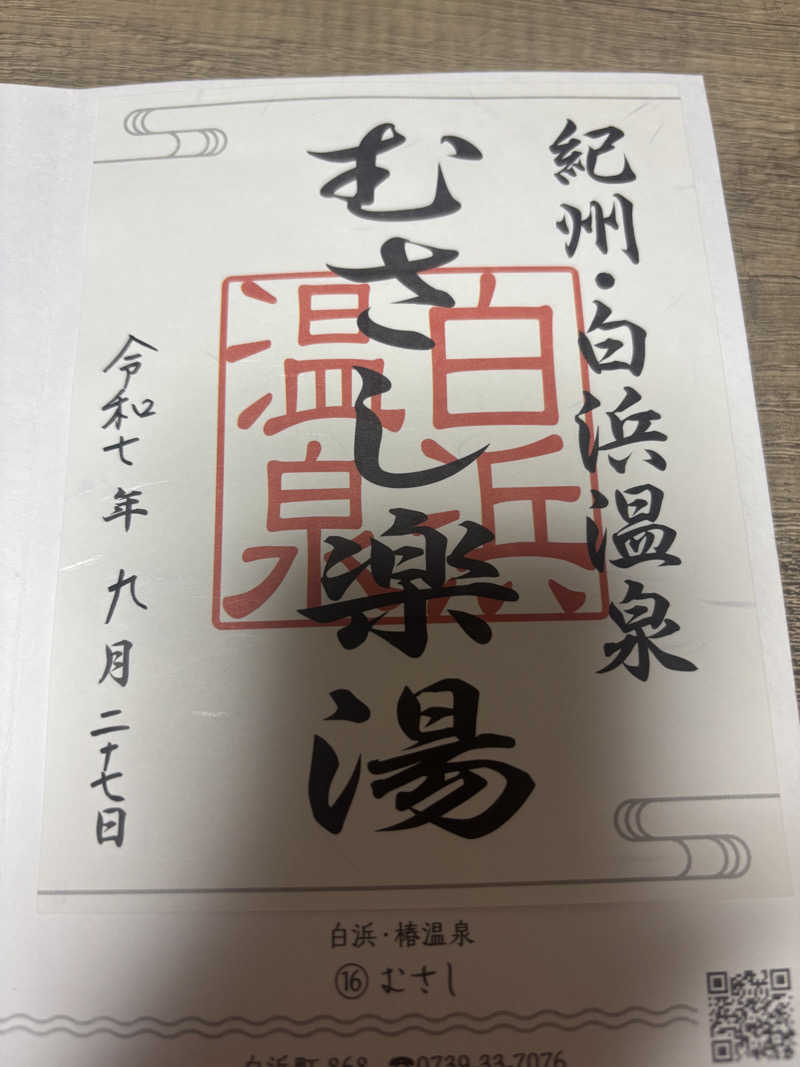 紀州・白浜温泉
むさし楽湯
白浜
温泉
令和七年 九月 二十七日
白浜・椿温泉
⑯ むさし
白浜町 868 ☎0739-33-7076